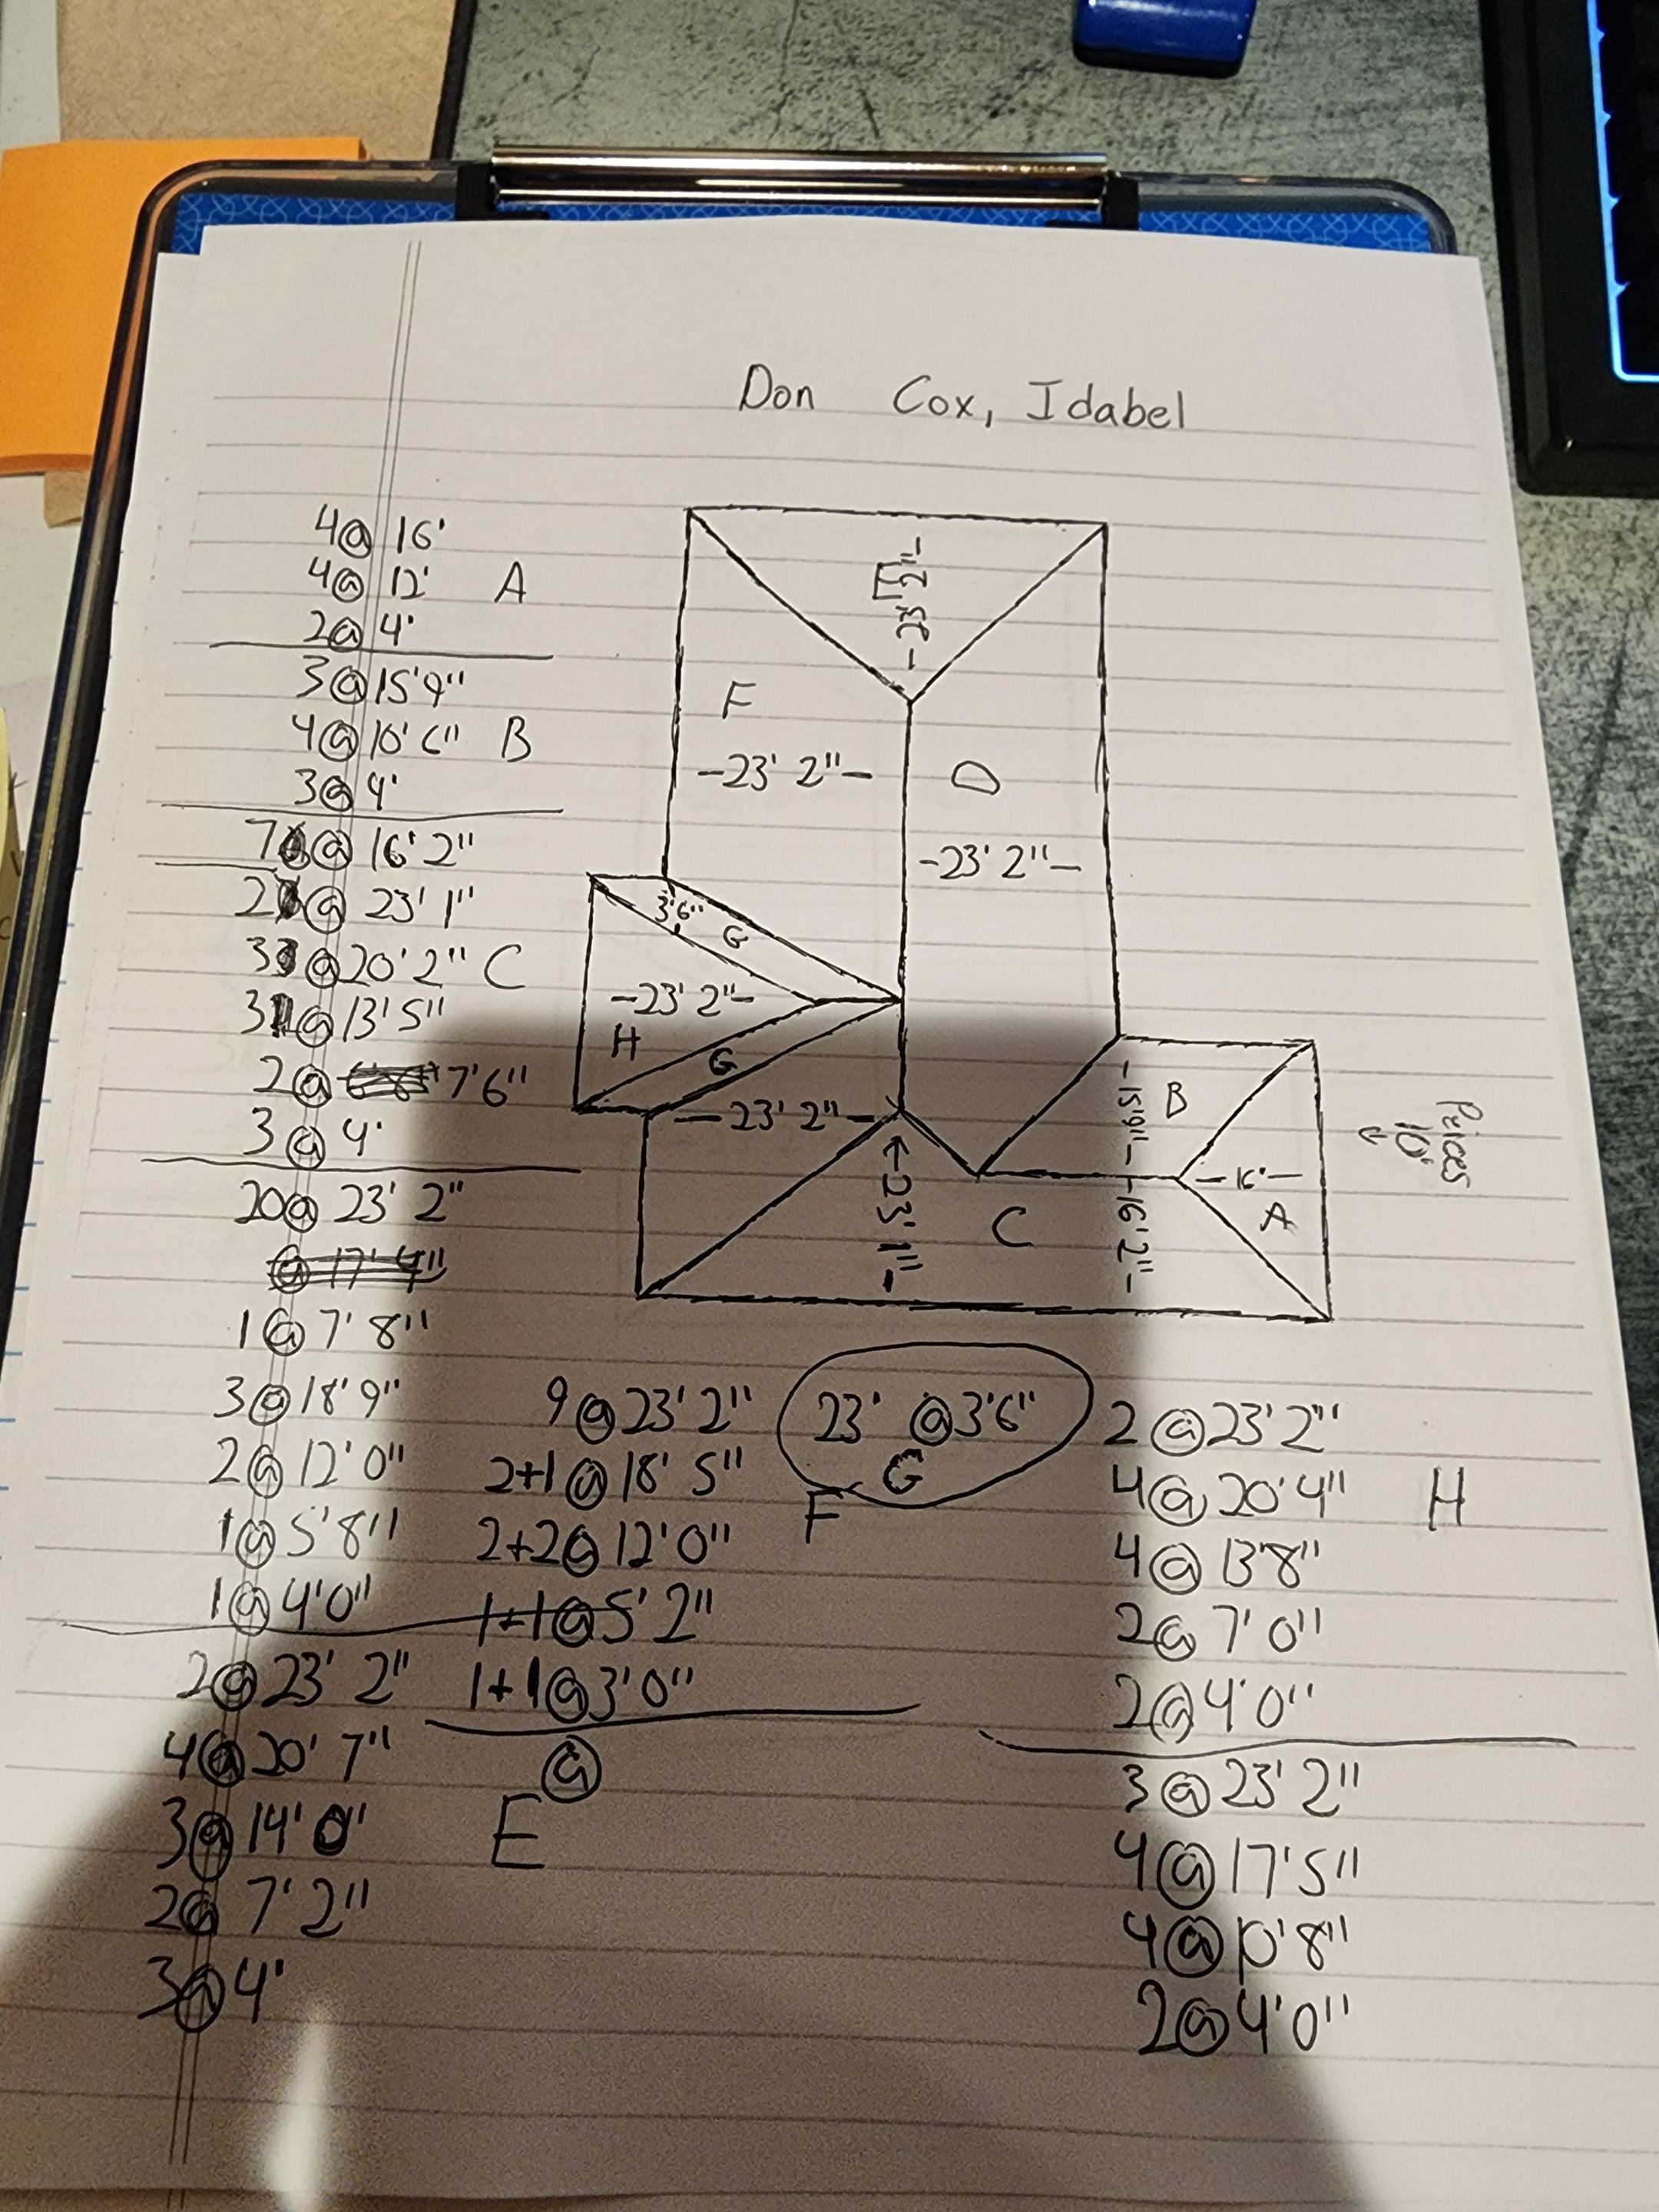 Don Cox, Idabel
4@ 16'
4@ 12' A
2@ 4'
3@ 15'9"
4@ 10'6" B
3@ 4'
7@ 16'2"
2@ 23'1"
3@ 20'2" C
3@ 13'5"
2@ 7'6"
3@ 4'
20@ 23'2"
@ 17'4"
1@ 7'8"
3@ 18'9"
2@ 12'0"
1@ 5'8"
1@ 4'0"
2@ 23'2"
4@ 20'7"
3@ 14'0"
2@ 7'2"
3@ 4'
E
-23'2"-
F
-23'2"-
D
-23'2"-
3'6"
G
-23'2"-
H
G
-23'2"-
←23'1"-
C
-15'9"-
B
-16'2"-
-16'-
A
10'
9@ 23'2"
2+1@ 18'5"
2+2@ 12'0"
1+1@ 5'2"
1+1@ 3'0"
@
E
23' @3'6"
G
F
2@ 23'2"
4@ 20'4" H
4@ 13'8"
2@ 7'0"
2@ 4'0"
3@ 23'2"
4@ 17'5"
4@ 10'8"
2@ 4'0"